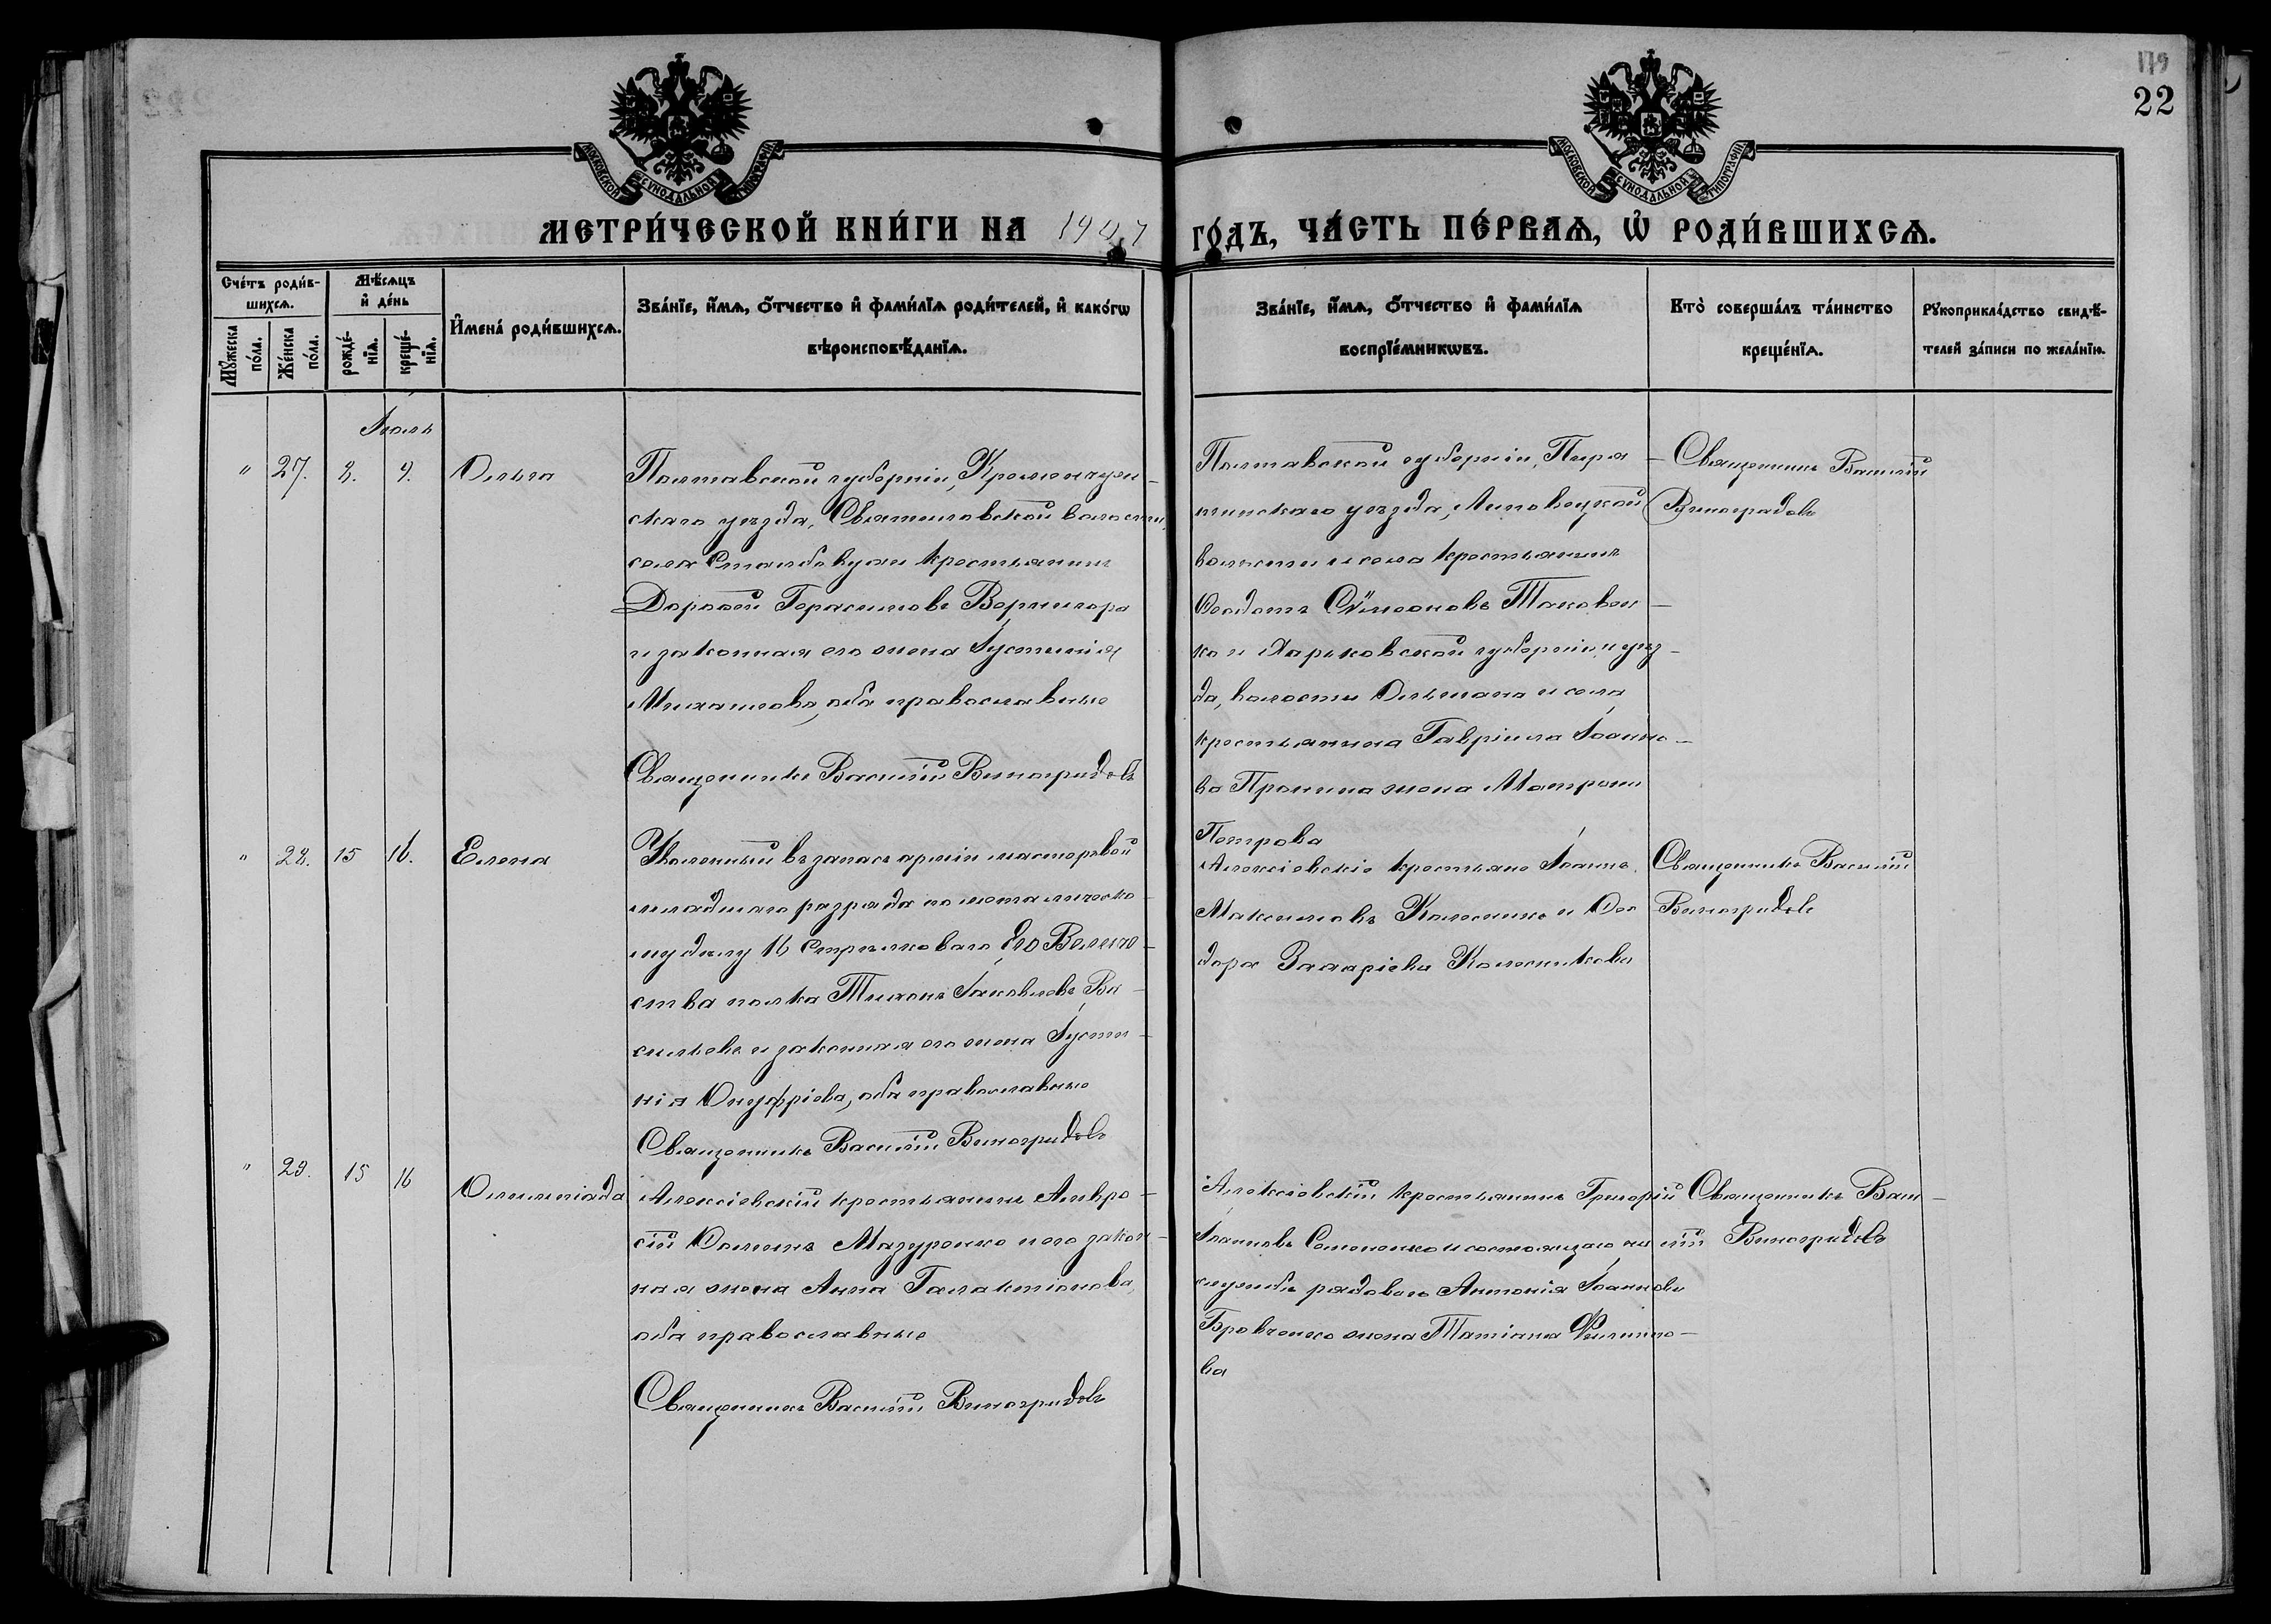 179
22
МОСКОВСКОЙ СУНОДАЛЬНОЙ ТИПОГРАФІИ
МОСКОВСКОЙ СУНОДАЛЬНОЙ ТИПОГРАФІИ
МЕТРИ́ЧЕСКОЙ КНИ́ГИ НА 1907 ГО́ДЪ, ЧА́СТЬ ПЕ́РВАѦ, Ѡ҆ РОДИ́ВШИХСѦ.
Сче́тъ роди́в-
шихсѧ.
Мꙋ́жеска по́ла.
Же́нска по́ла.
Мѣ́сѧцъ
и҆ де́нь
рожде́-нїѧ.
креще́-нїѧ.
И҆мена̀ роди́вшихсѧ.
Зва́нїе, и҆́мѧ, ѻ҆́тчество и҆ фами́лїѧ роди́телей, и҆ како́гѡ
вѣроисповѣ́данїѧ.
Зва́нїе, и҆́мѧ, ѻ҆́тчество и҆ фами́лїѧ
воспрїе́мникѡвъ.
Кто̀ соверша́лъ та́инство
креще́нїѧ.
Рꙋкоприкла́дство свидѣ́-
телей за́писи по жела́нїю.
Іюль
" 27. 8. 9. Ольга
Полтавской губерніи, Кременчуг-
скаго уѣзда, Святиловской волости,
села крестьянинъ
Дорофей Герасимовъ Вернигора
и законная его жена Іустинія
Михаилова, оба православные
Священникъ Василій Виноградовъ
Полтавской губерніи, Пиря-
тинскаго уѣзда, Линовецкой
волости и села крестьянинъ
Ѳеодотъ Сѵмеоновъ Таковен-
ко и Харьковской губерніи и уѣз-
да, волости Ольшана и села
крестьянина Гавріила Іоанно-
ва Пронина жена Матрона
Петрова
Священникъ Василій
Виноградовъ
" 28. 15 16. Елена
Уволенный въ запасъ арміи мастеровой
младшаго разряда по металическо-
му дѣлу 16 Стрѣлковаго Его Величе-
ства полка Тихонъ Іаковлевъ Ва-
сильевъ и законная его жена Іусти-
нія Онуфріева, оба православные
Священникъ Василій Виноградовъ
Алексіевскіе крестьяне Іоаннъ
Максимовъ Колесникъ и Ѳео
дора Захаріева Колесникова
Священникъ Василій
Виноградовъ
" 29. 15 16 Олимпіада
Алексіевскій крестьянинъ Амвро-
сій Ѳоминъ Мазуренко и его закон-
ная жена Анна Галактіонова,
оба православные
Священникъ Василій Виноградовъ
Алексіевскій крестьянинъ Григорій
Іоанновъ Семененко и состоящаго на
службѣ рядоваго Антонія Іоаннова
Бровченко жена Татіана Филиппо-
ва
Священникъ Васи-
лій Виноградовъ